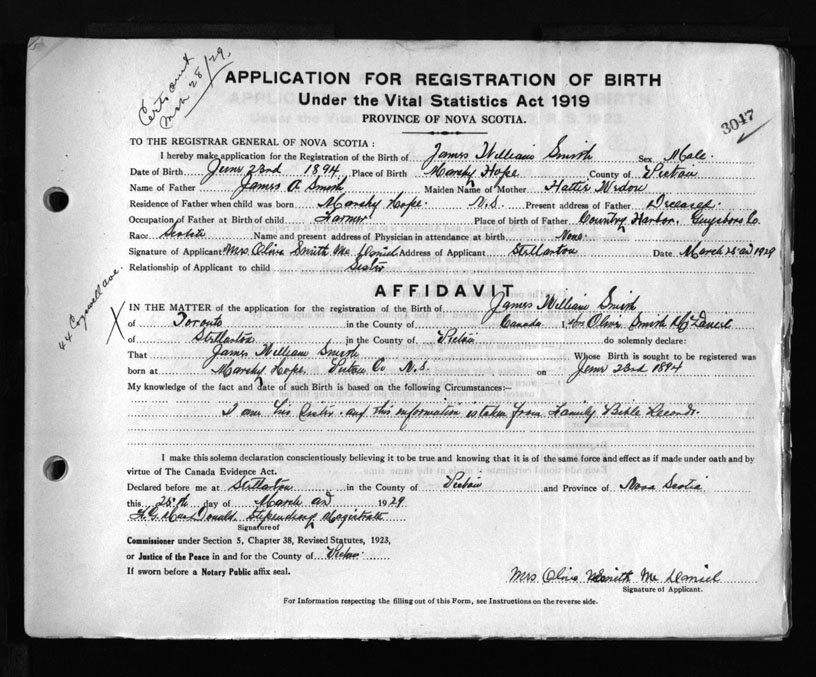 Certs out
Mch 28/29.
APPLICATION FOR REGISTRATION OF BIRTH
Under the Vital Statistics Act 1919
PROVINCE OF NOVA SCOTIA.
3047
TO THE REGISTRAR GENERAL OF NOVA SCOTIA:
I hereby make application for the Registration of the Birth of James William Smith Sex Male.
Date of Birth June 23rd 1894 Place of Birth Marshy Hope County of Pictou
Name of Father James A. Smith Maiden Name of Mother Hattie
Residence of Father when child was born Marshy Hope. N.S. Present address of Father Deceased.
Occupation of Father at Birth of child Farmer Place of birth of Father Country Harbor, Guysboro Co.
Race Scotch Name and present address of Physician in attendance at birth None.
Signature of Applicant Mrs Olive Smith Mc Daniel Address of Applicant Stellarton Date March 1929
Relationship of Applicant to child Sister
44 Cogswell ave.
AFFIDAVIT
IN THE MATTER of the application for the registration of the Birth of James William Smith
of Toronto in the County of Canada I, Mrs Olive Smith McDaniel
of Stellarton in the County of Pictou do solemnly declare:
That James William Smith Whose Birth is sought to be registered was
born at Marshy Hope Pictou Co N.S. on June 23rd 1894
My knowledge of the fact and date of such Birth is based on the following Circumstances:—
I am his Sister. and this information is taken from Family Bible Records.
I make this solemn declaration conscientiously believing it to be true and knowing that it is of the same force and effect as if made under oath and by
virtue of The Canada Evidence Act.
Declared before me at Stellarton in the County of Pictou and Province of Nova Scotia
this 25th day of March AD 1929
MacDonald Stipendiary Magistrate
Signature of
Commissioner under Section 5, Chapter 38, Revised Statutes, 1923,
or Justice of the Peace in and for the County of Pictou
If sworn before a Notary Public affix seal.
Mrs Olive Smith Mc Daniel
Signature of Applicant.
For Information respecting the filling out of this Form, see Instructions on the reverse side.